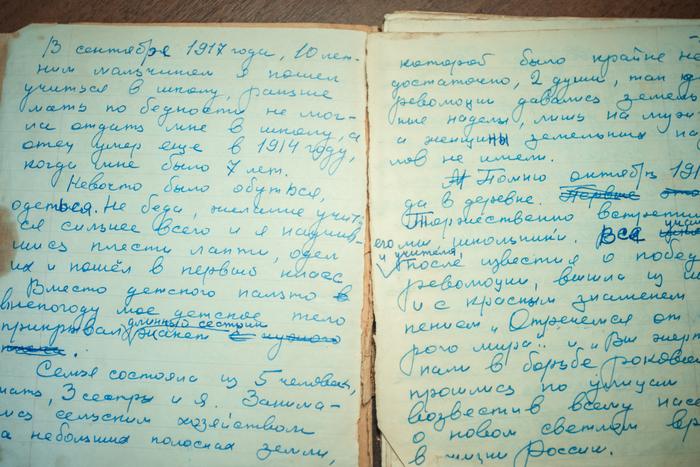 В сентябре 1917 года, 10 лет-
ним мальчиком я пошел
учиться в школу, раньше
мать по бедности не мог-
ла отдать мне в школу, а
отец умер еще в 1914 году,
когда мне было 7 лет.
Невочто было обуться,
одеться. Не беда, желание учить
ся сильнее всего и я научив-
шись плести лапти, одел
их и пошёл в первый класс
Вместо детского пальто в
непогоду мое детское тело
прикрывал длинный сестрин
Семья состояла из 5 человек,
мать, 3 сестры и я. Занима-
лись сельским хозяйством
на небольших полосках земли,
которой было крайне не
достаточно, 2 души, так
революции давались земель
ные наделы, лишь на муж
а женщины земельных на
лов не имели.
Помню октябрь 191
да в деревне.
Торжественно встретили
его мы школьники. Все
и учителя,
После известия о побед
революции, вышла из
и с красным знаменем
пением „Отречемся от
рого мира" и „Вы жерт
пали в борьбе роковой
прошлись по улицам
возвестив всему насе
о новом светлом вре
в жизни России.